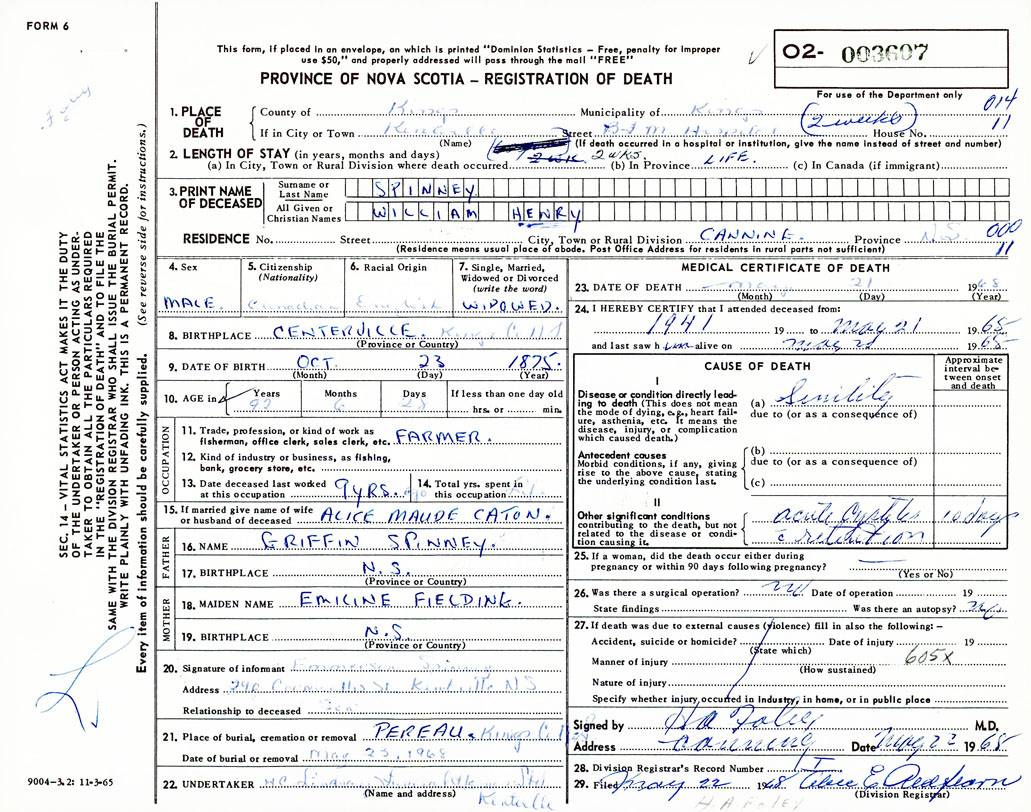 FORM 6
This form, if placed in an envelope, on which is printed "Dominion Statistics – Free, penalty for improper
use $50," and properly addressed will pass through the mail "FREE"
PROVINCE OF NOVA SCOTIA – REGISTRATION OF DEATH
O2- 003607
For use of the Department only
014
11
1. PLACE OF DEATH
County of Kings Municipality of Kings
(2 weeks)
If in City or Town Kentville Street B.F.M. Hospital House No.
(Name) (If death occurred in a hospital or institution, give the name instead of street and number)
2. LENGTH OF STAY (in years, months and days)
(a) In City, Town or Rural Division where death occurred 2 WKS. (b) In Province LIFE. (c) In Canada (if immigrant)
3. PRINT NAME OF DECEASED
Surname or Last Name SPINNEY
All Given or Christian Names WILLIAM HENRY
RESIDENCE No. Street City, Town or Rural Division CANNING. Province N.S.
000
11
(Residence means usual place of abode. Post Office Address for residents in rural parts not sufficient)
4. Sex MALE.
5. Citizenship (Nationality) Canadian
6. Racial Origin English
7. Single, Married, Widowed or Divorced (write the word) WIDOWED.
8. BIRTHPLACE CENTERVILLE. Kings Co. N.S
(Province or Country)
9. DATE OF BIRTH OCT. 23 1875.
(Month) (Day) (Year)
10. AGE in Years 92 Months 6 Days 28 If less than one day old hrs. or min.
OCCUPATION
11. Trade, profession, or kind of work as fisherman, office clerk, sales clerk, etc. FARMER.
12. Kind of industry or business, as fishing, bank, grocery store, etc.
13. Date deceased last worked at this occupation 9 YRS. ago
14. Total yrs. spent in this occupation
15. If married give name of wife or husband of deceased ALICE MAUDE CATON.
FATHER
16. NAME GRIFFIN SPINNEY.
17. BIRTHPLACE N.S.
(Province or Country)
MOTHER
18. MAIDEN NAME EMILINE FIELDING.
19. BIRTHPLACE N.S.
(Province or Country)
20. Signature of informant Emmerson Spinney
Address 290 Cornwallis St. Kentville NS
Relationship to deceased Son
21. Place of burial, cremation or removal PEREAU. Kings Co. N.S
Date of burial or removal May 23, 1968
22. UNDERTAKER
(Name and address) Kentville
MEDICAL CERTIFICATE OF DEATH
23. DATE OF DEATH May 21 1968
(Month) (Day) (Year)
24. I HEREBY CERTIFY that I attended deceased from:
1941 19 to May 21 1968
and last saw him alive on May 21 1968
CAUSE OF DEATH
Approximate interval between onset and death
I
Disease or condition directly leading to death (This does not mean the mode of dying, e.g., heart failure, asthenia, etc. It means the disease, injury, or complication which caused death.)
(a) Senility
due to (or as a consequence of)
Antecedent causes
Morbid conditions, if any, giving rise to the above cause, stating the underlying condition last.
(b)
due to (or as a consequence of)
(c)
II
Other significant conditions contributing to the death, but not related to the disease or condition causing it.
acute Cystitis 10 days
c retention
25. If a woman, did the death occur either during
pregnancy or within 90 days following pregnancy?
(Yes or No)
26. Was there a surgical operation? no Date of operation 19
State findings Was there an autopsy? no
27. If death was due to external causes (violence) fill in also the following: –
Accident, suicide or homicide? Date of injury 19
(State which)
Manner of injury 605X
(How sustained)
Nature of injury
Specify whether injury occurred in Industry, in home, or in public place
Signed by H A Foley M.D.
Address Canning Date May 22 1968
28. Division Registrar's Record Number
29. Filed May 22 1968
(Division Registrar)
H.A FOLEY
Foley
SEC. 14 – VITAL STATISTICS ACT MAKES IT THE DUTY
OF THE UNDERTAKER OR PERSON ACTING AS UNDER-
TAKER TO OBTAIN ALL THE PARTICULARS REQUIRED
IN THE "REGISTRATION OF DEATH" AND TO FILE THE
SAME WITH THE DIVISION REGISTRAR WHO SHALL ISSUE THE BURIAL PERMIT.
WRITE PLAINLY WITH UNFADING INK. THIS IS A PERMANENT RECORD.
Every item of information should be carefully supplied. (See reverse side for instructions.)
9004-3.2: 11-3-65